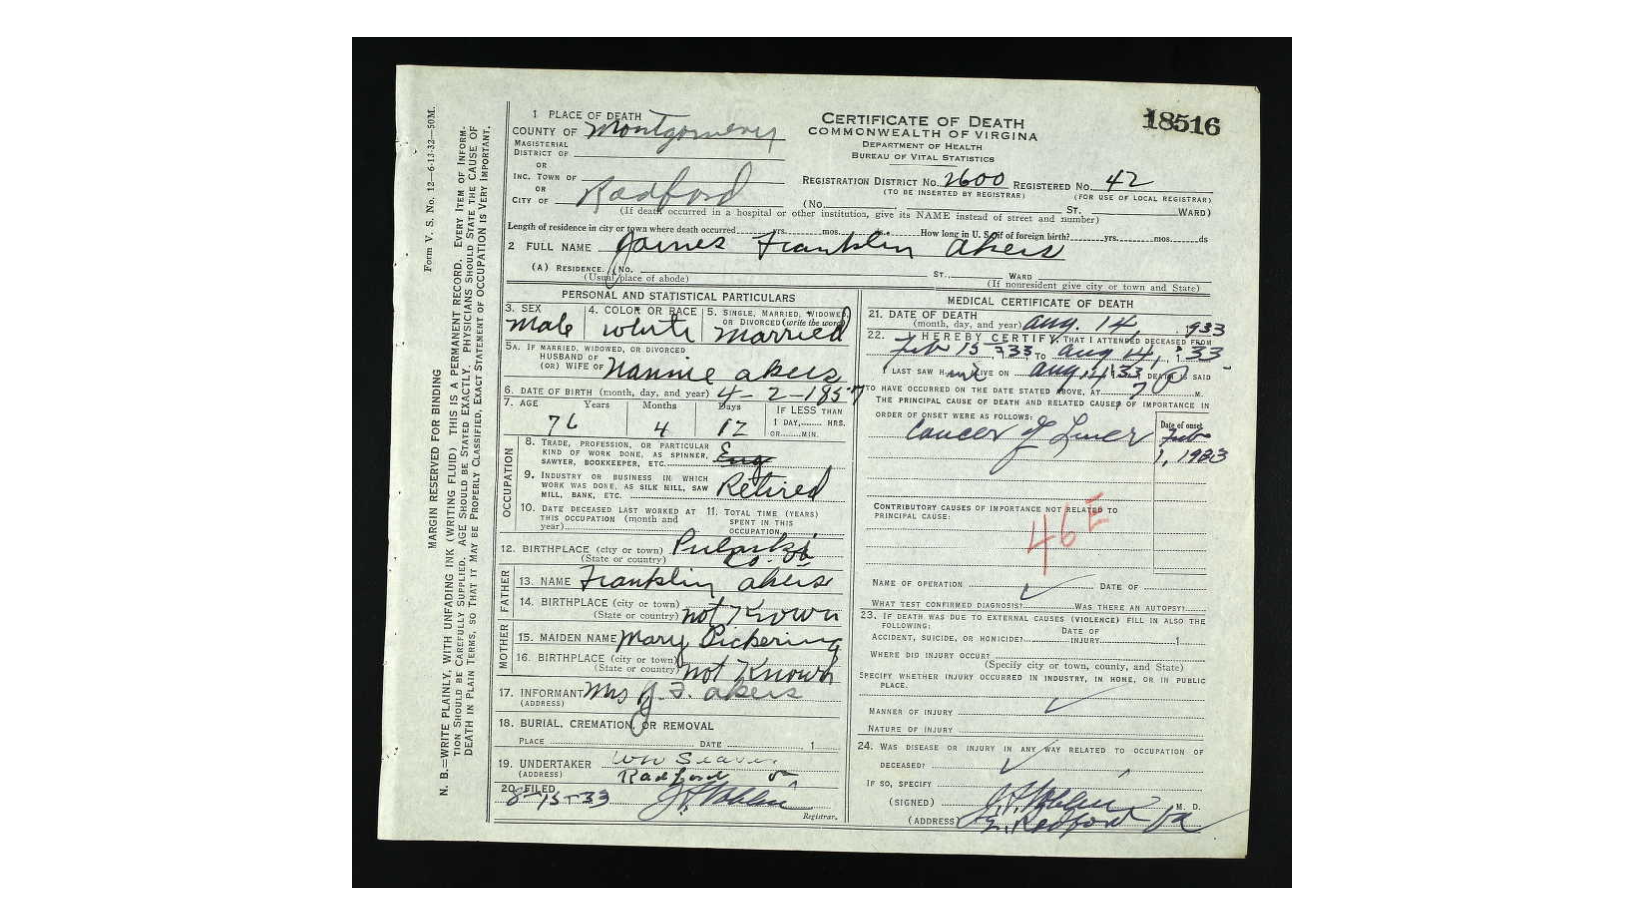 Form V. S. No. 12—6-13-32—50M.
MARGIN RESERVED FOR BINDING
N. B.—WRITE PLAINLY, WITH UNFADING INK (WRITING FLUID) THIS IS A PERMANENT RECORD. EVERY ITEM OF INFORM-
TION SHOULD BE CAREFULLY SUPPLIED. AGE SHOULD BE STATED EXACTLY. PHYSICIANS SHOULD STATE THE CAUSE OF
DEATH IN PLAIN TERMS, SO THAT IT MAY BE PROPERLY CLASSIFIED. EXACT STATEMENT OF OCCUPATION IS VERY IMPORTANT.
CERTIFICATE OF DEATH
COMMONWEALTH OF VIRGINIA
DEPARTMENT OF HEALTH
BUREAU OF VITAL STATISTICS
18516
1 PLACE OF DEATH
COUNTY OF Montgomery
MAGISTERIAL
DISTRICT OF
OR
INC. TOWN OF
OR
CITY OF Radford
REGISTRATION DISTRICT No. 2600 REGISTERED No. 42
(TO BE INSERTED BY REGISTRAR) (FOR USE OF LOCAL REGISTRAR)
(No. ST. WARD)
(If death occurred in a hospital or other institution, give its NAME instead of street and number)
Length of residence in city or town where death occurred yrs. mos. ds. How long in U. S. if of foreign birth? yrs. mos. ds
2 FULL NAME James Franklin Akers
(A) RESIDENCE. No. ST. WARD
(Usual place of abode) (If nonresident give city or town and State)
PERSONAL AND STATISTICAL PARTICULARS
3. SEX Male
4. COLOR OR RACE white
5. SINGLE, MARRIED, WIDOWED,
OR DIVORCED (write the word) married
5A. IF MARRIED, WIDOWED, OR DIVORCED
HUSBAND OF
(OR) WIFE OF Nannie Akers
6. DATE OF BIRTH (month, day, and year) 4-2-1857
7. AGE Years Months Days IF LESS THAN
1 DAY, HRS.
OR MIN.
76 4 12
OCCUPATION
8. TRADE, PROFESSION, OR PARTICULAR
KIND OF WORK DONE, AS SPINNER,
SAWYER, BOOKKEEPER, ETC. Eng
9. INDUSTRY OR BUSINESS IN WHICH
WORK WAS DONE, AS SILK MILL, SAW
MILL, BANK, ETC. Retired
10. DATE DECEASED LAST WORKED AT
THIS OCCUPATION (month and
year)
11. TOTAL TIME (YEARS)
SPENT IN THIS
OCCUPATION
12. BIRTHPLACE (city or town) Pulaski
(State or country) Co. Va
FATHER
13. NAME Franklin Akers
14. BIRTHPLACE (city or town)
(State or country) not Known
MOTHER
15. MAIDEN NAME Mary Pickering
16. BIRTHPLACE (city or town)
(State or country) not Known
17. INFORMANT Mrs J. F. Akers
(ADDRESS)
18. BURIAL, CREMATION, OR REMOVAL
PLACE DATE , 1
19. UNDERTAKER
(ADDRESS) Radford Va
20. FILED 8-15-33
Registrar.
MEDICAL CERTIFICATE OF DEATH
21. DATE OF DEATH
(month, day, and year) Aug. 14, 1933
22. I HEREBY CERTIFY, THAT I ATTENDED DECEASED FROM
Feb 15, 33 TO Aug 14, 1 33
I LAST SAW H im LIVE ON Aug 14, 33 DEATH IS SAID
TO HAVE OCCURRED ON THE DATE STATED ABOVE, AT 7 P M.
THE PRINCIPAL CAUSE OF DEATH AND RELATED CAUSES OF IMPORTANCE IN
ORDER OF ONSET WERE AS FOLLOWS: Date of onset
Cancer of Liver Feb
1, 1933
CONTRIBUTORY CAUSES OF IMPORTANCE NOT RELATED TO
PRINCIPAL CAUSE:
46E
NAME OF OPERATION DATE OF
WHAT TEST CONFIRMED DIAGNOSIS? WAS THERE AN AUTOPSY?
23. IF DEATH WAS DUE TO EXTERNAL CAUSES (VIOLENCE) FILL IN ALSO THE
FOLLOWING:
ACCIDENT, SUICIDE, OR HOMICIDE? DATE OF
INJURY 1
WHERE DID INJURY OCCUR?
(Specify city or town, county, and State)
SPECIFY WHETHER INJURY OCCURRED IN INDUSTRY, IN HOME, OR IN PUBLIC
PLACE.
MANNER OF INJURY
NATURE OF INJURY
24. WAS DISEASE OR INJURY IN ANY WAY RELATED TO OCCUPATION OF
DECEASED?
IF SO, SPECIFY
(SIGNED) M. D.
(ADDRESS) E. Radford Va